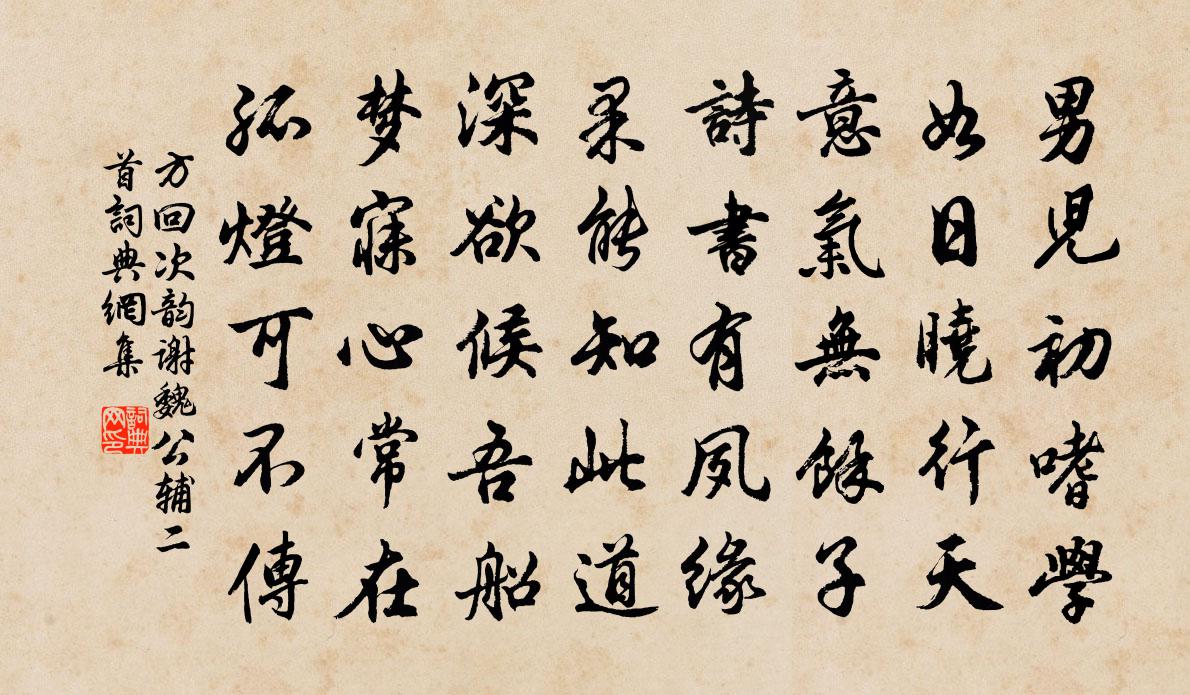 男児初嗜學
如日曉行天
意氣無餘子
詩書有夙緣
果能知此道
深欲候吾船
梦寐心常在
孤燈可不傳
方回次韵谢魏公辅二
首詞典網集
詞典
网印